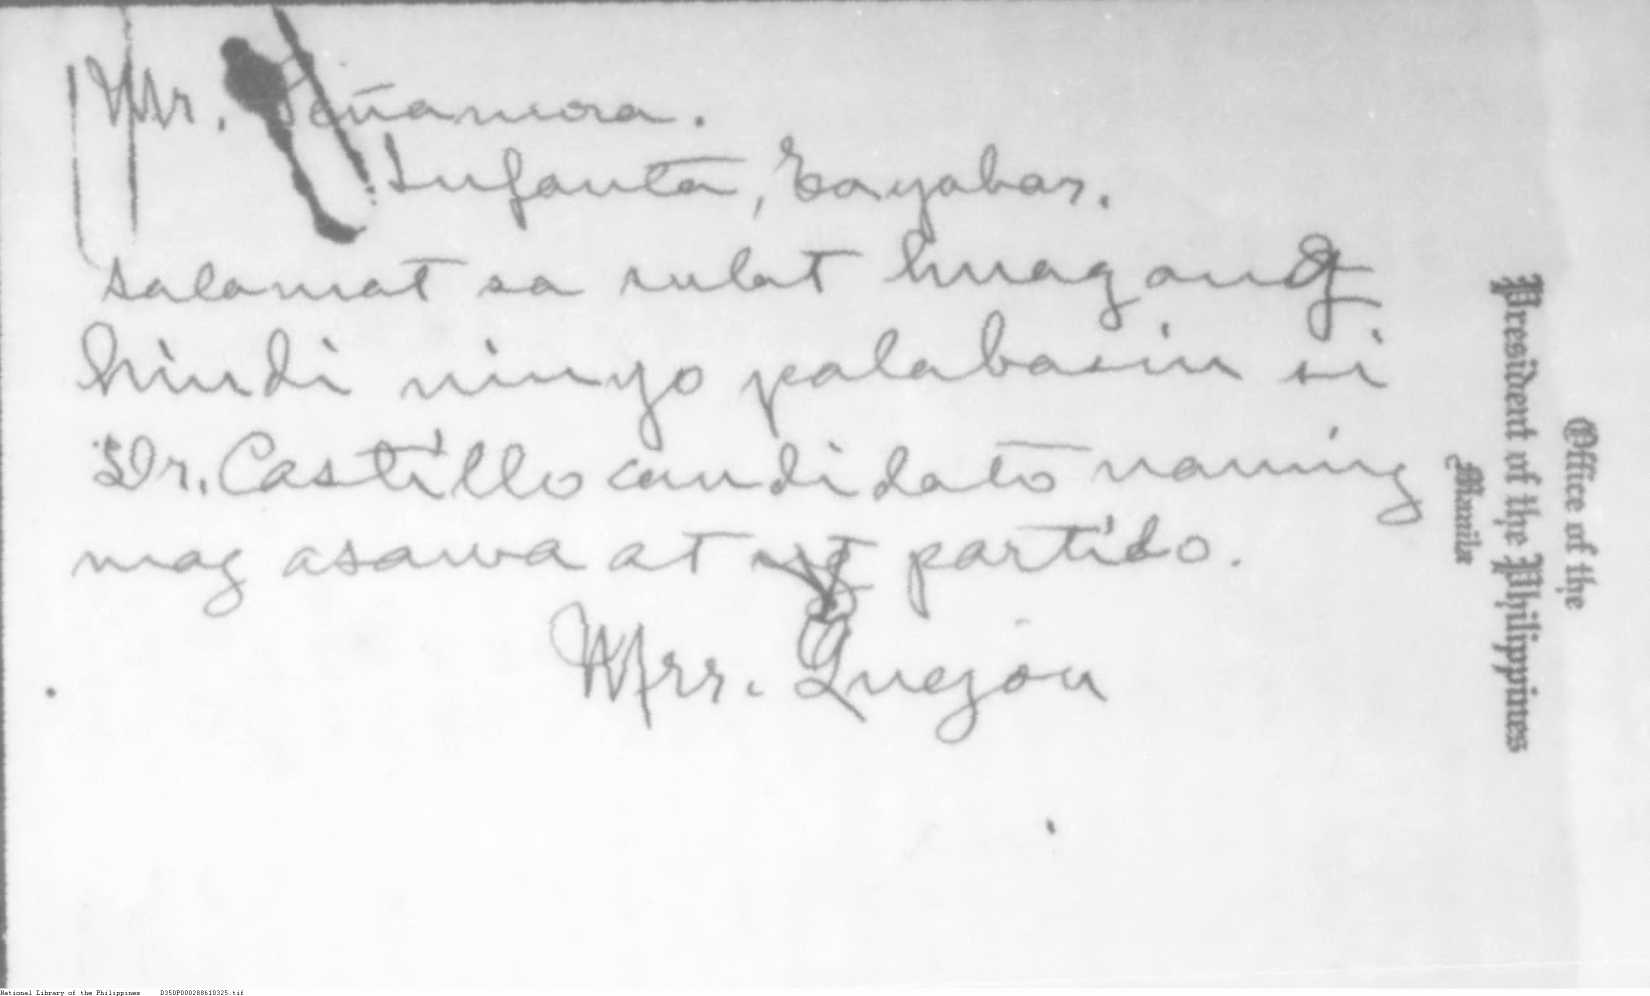 Mr. Peñamora.
Infanta, Tayabas.
Salamat sa sulat huag ang
hindi ninyo palabasin si
Dr. Castillo candidato naming
mag asawa at ng partido.
Mrs. Quezon
Office of the
President of the Philippines
Manila
National Library of the Philippines D350P000288610325.tif